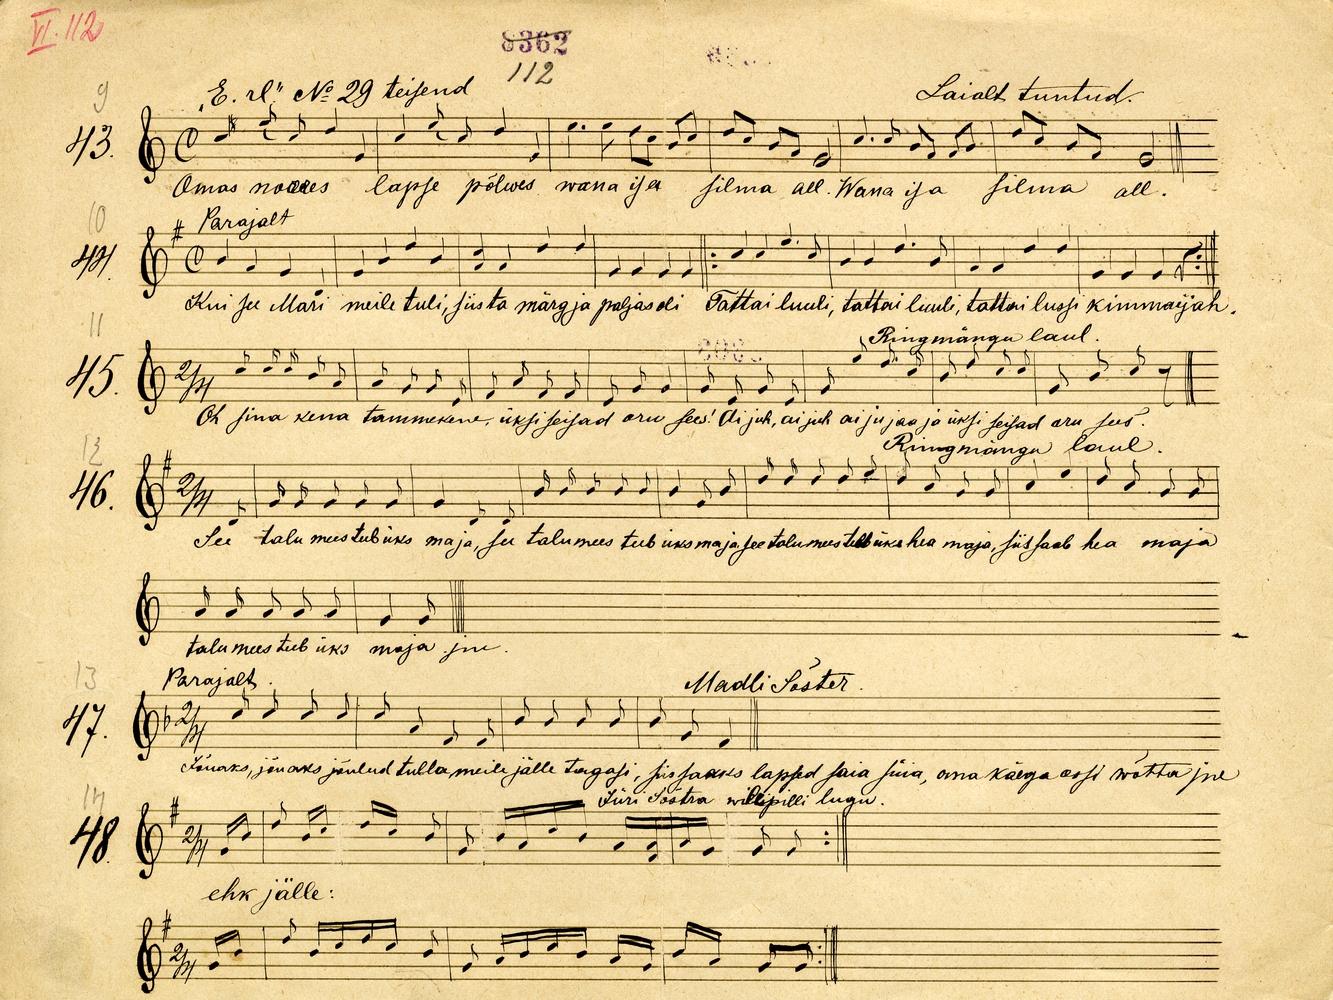 VI. 112
8362
112
9
„E. rl." № 29 teisend
Laialt tuntud.
43.
Omas noores lapse põlwes wana isa silma all. Wana isa silma all.
10
Parajalt
44.
Kui see Mari meile tuli, siis ta märg ja paljas oli Tattai luuli, tattai luuli, tattai lussi kimmaijah.
11
Ringmängu laul.
45.
2/4
Oh sina kena tammekene, üksi seisad oru sees! Ai juh, ai juh ai ju jaa ja üksi seisad oru sees.
12
Ringmängu laul.
46.
2/4
See talu mees teeb üks maja, see talu mees teeb üks maja, see talu mees teeb üks hea maja, siis saab hea maja
talu mees teeb üks maja jne.
13
Parajalt.
Madli Sõster.
47.
2/4
Jõuaks, jõuaks jõulud tulla, meile jälle tagasi, siis saaks lapsed saia süia, oma käega wõtta jne
14
Jüri Sõstra willipilli lugu.
48.
2/4
ehk jälle:
2/4